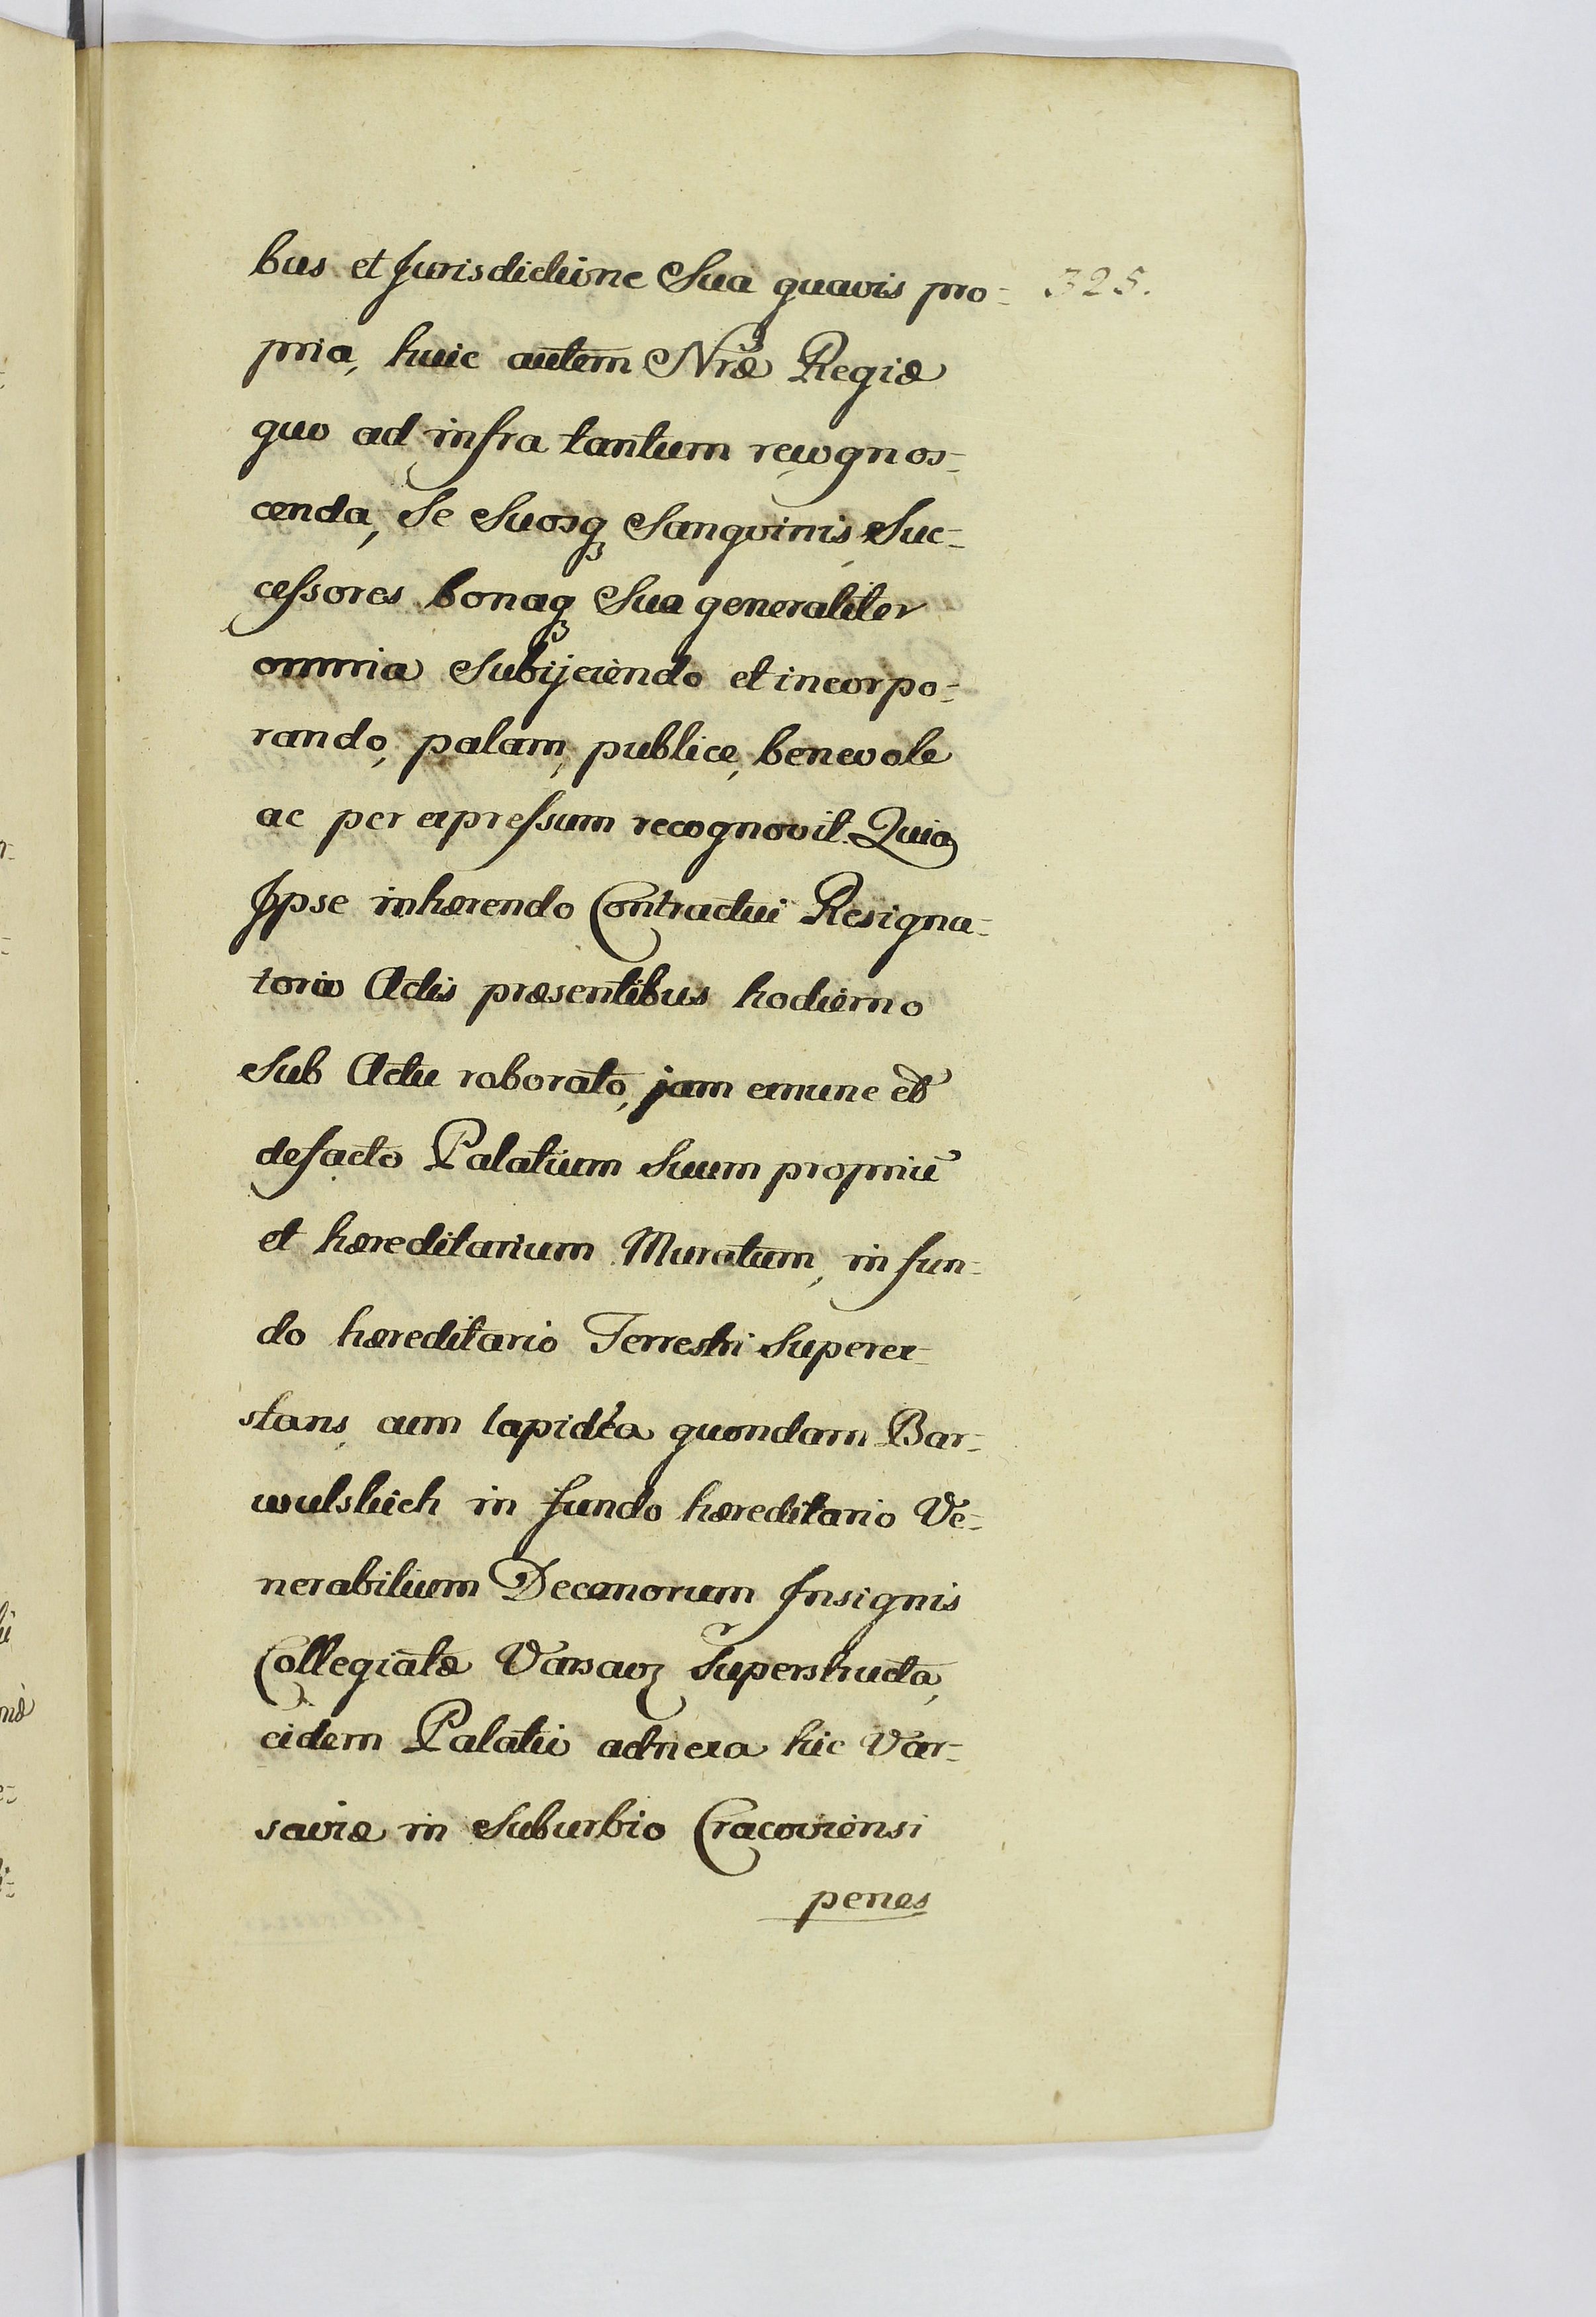 bus et Jurisdictione Sua quavis pro=
325.
pria, huic autem Nræ Regiæ
quo ad infra tantum recognos=
cenda, Se Suosq3 Sanguinis Suc=
cessores bonaq3 Sua generaliter
omnia Subijciendo et incorpo=
rando, palam, publice, benevole
ac per expressum recognovit. Quia
Ipse inhærendo Contractui Resigna=
torio Actis præsentibus hodierno
Sub Actu roborato, jam exnunc et
defacto Palatium Suum propriū
et hæreditarium Muratum, in fun=
do hæreditario Terrestri Superex=
stans cum lapidea quondam Bar=
wulskich in fundo hæreditario Ve=
nerabilium Decanorum Insignis
Collegiatæ Varsavz Superstructa,
eidem Palatio adnexa hic Var=
saviæ in Suburbio Cracoviensi
penes